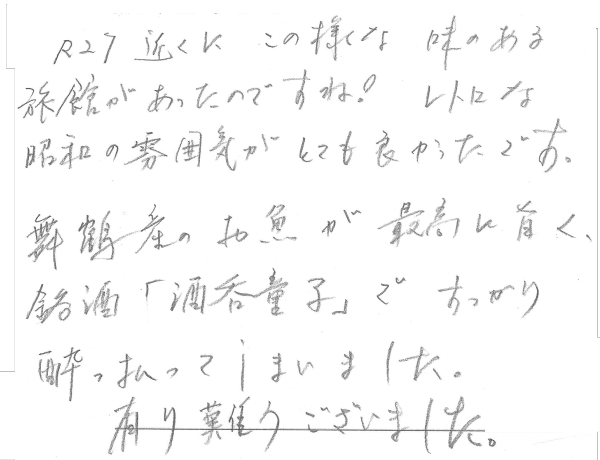 R27 近くに この様な 味のある
旅館があったのですね! レトロな
昭和の雰囲気が とても良かったです。
舞鶴産の お魚が 最高に旨く、
銘酒「酒呑童子」で すっかり
酔っ払ってしまいました。
有り難う ございました。